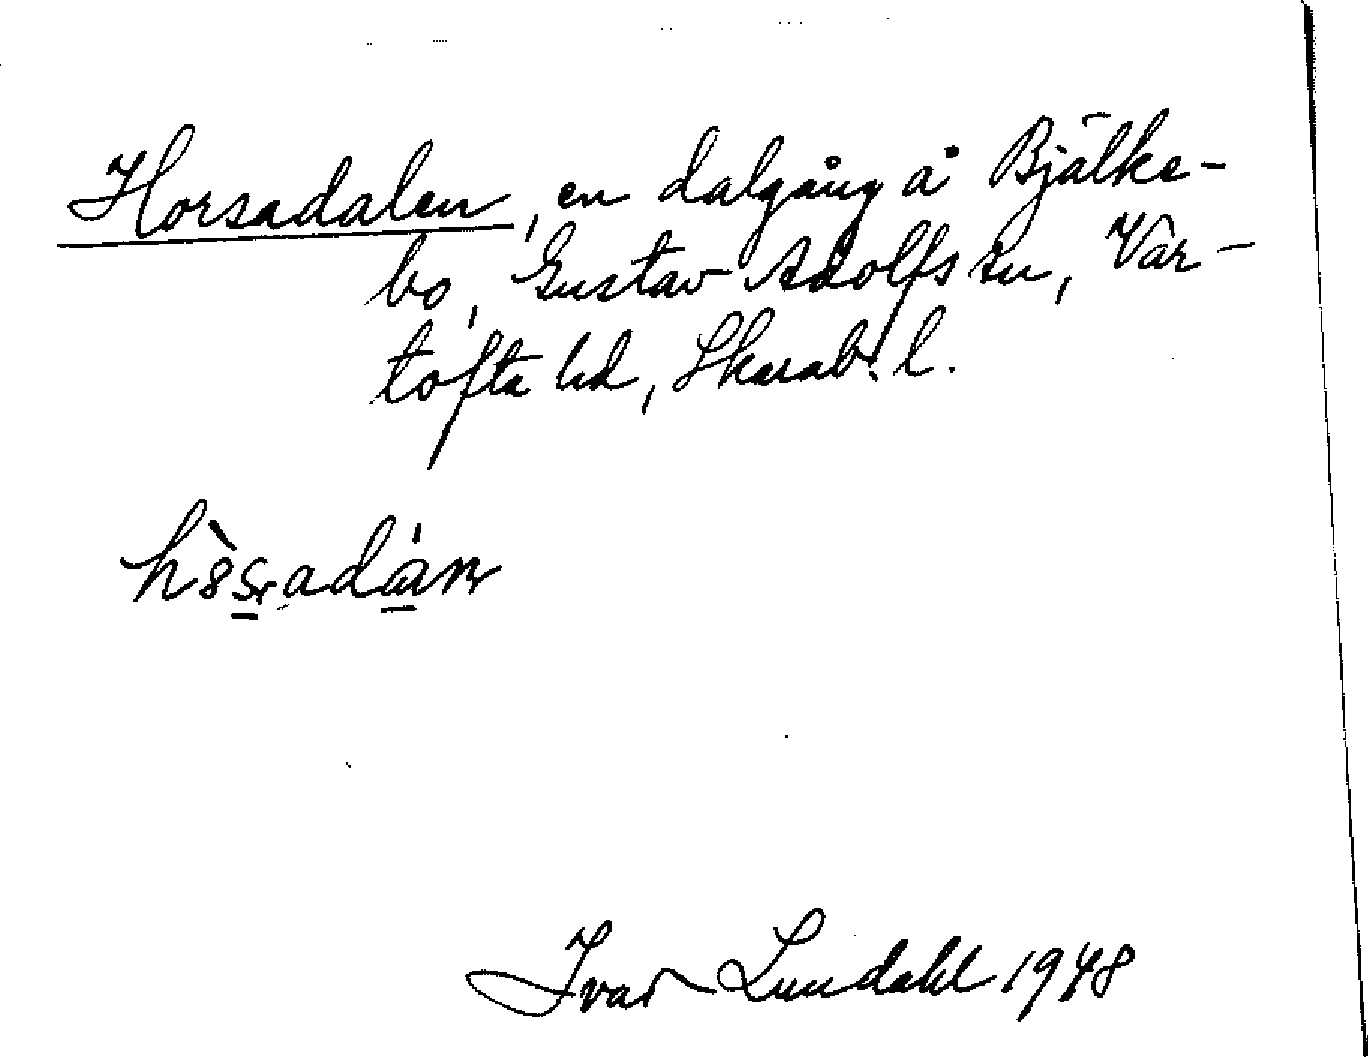 Horsadalen, en dalgång å Bjälke-
bo, Gustav Adolfs sn, Var-
tofta hd, Skarab. l.
Ivar Lundahl 1948